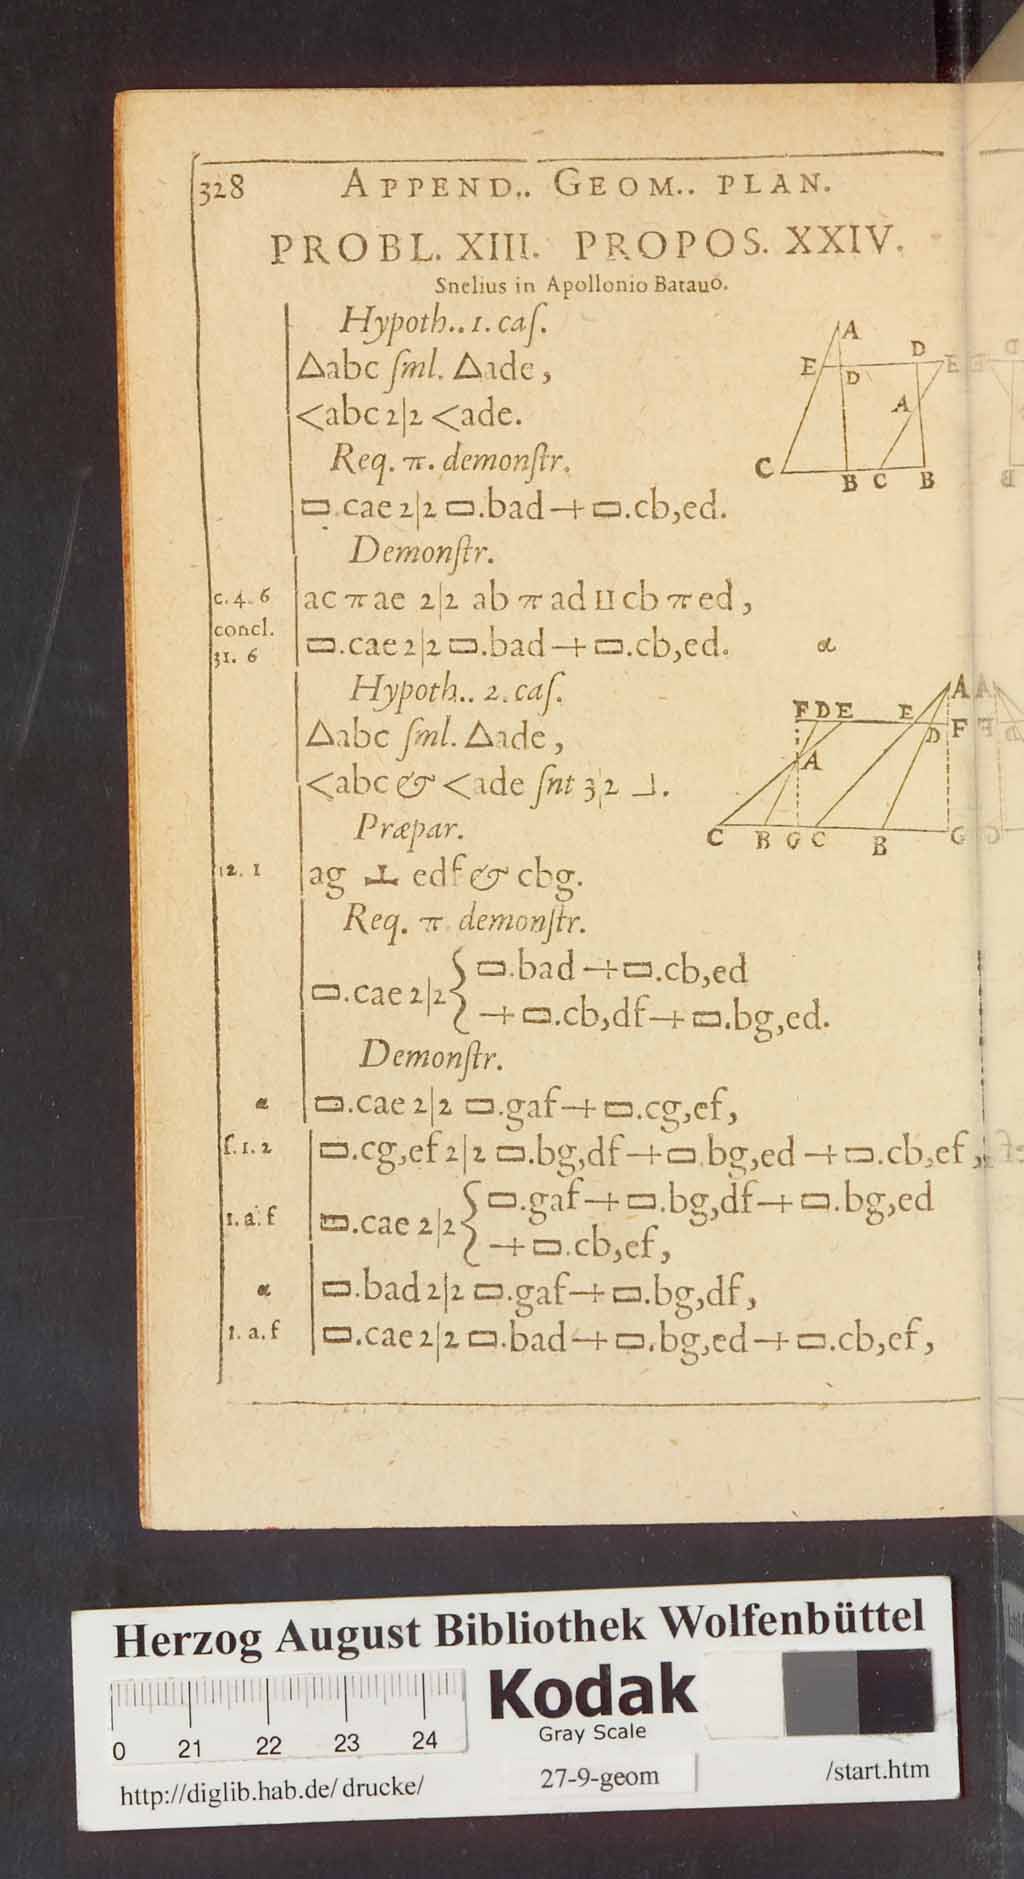 328 APPEND.. GEOM.. PLAN.
PROBL. XIII. PROPOS. XXIV.
Snelius in Apollonio Batauō.
Hypoth.. 1. caſ.
△abc ſml. △ade,
<abc 2|2 <ade.
Req. π. demonſtr.
▭.cae 2|2 ▭.bad + ▭.cb,ed.
Demonſtr.
c. 4. 6 ac π ae 2|2 ab π ad II cb π ed,
concl.
31. 6 ▭.cae 2|2 ▭.bad + ▭.cb,ed. α
Hypoth.. 2. caſ.
△abc ſml. △ade,
<abc & <ade ſnt 3|2 ⅃.
Præpar.
12. 1 ag ⊥ edf & cbg.
Req. π demonſtr.
▭.cae 2|2 { ▭.bad + ▭.cb,ed
+ ▭.cb,df + ▭.bg,ed.
Demonſtr.
α ▭.cae 2|2 ▭.gaf + ▭.cg,ef,
f. 1. 2 ▭.cg,ef 2|2 ▭.bg,df + ▭.bg,ed + ▭.cb,ef,
1. a. f ▭.cae 2|2 { ▭.gaf + ▭.bg,df + ▭.bg,ed
+ ▭.cb,ef,
α ▭.bad 2|2 ▭.gaf + ▭.bg,df,
1. a. f ▭.cae 2|2 ▭.bad + ▭.bg,ed + ▭.cb,ef,
A
E D D E
A
C B C B
F D E E A
D F
A
C B G C B G
Herzog August Bibliothek Wolfenbüttel
Kodak
Gray Scale
0 21 22 23 24
http://diglib.hab.de/drucke/ 27-9-geom /start.htm